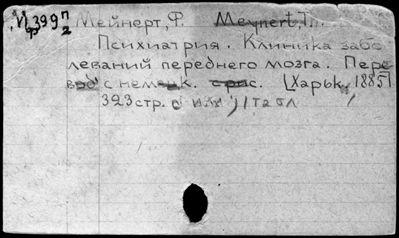 VI 399 п/2
ф
Мейнерт, Ф. Meynert, Th.
Психиатрия. Клиника забо
леваний переднего мозга. Пере
вод с немецк. с рис. [Харьк., 1885]
323 стр. с илл., 1 табл